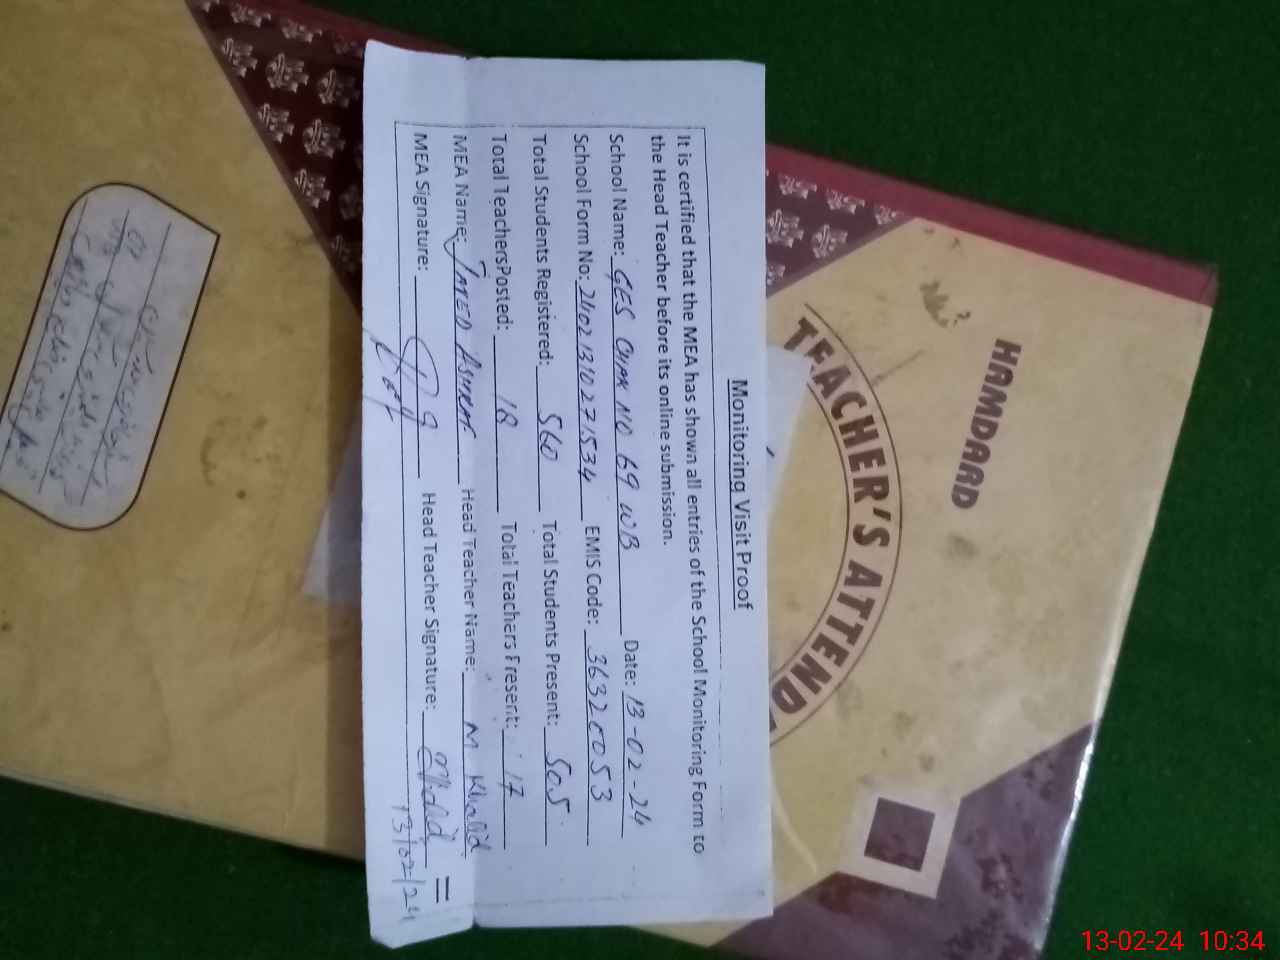 Monitoring Visit Proof
It is certified that the MEA has shown all entries of the School Monitoring Form to
the Head Teacher before its online submission.
School Name: GES CHAK NO 69 WB Date: 13-02-24
School Form No: 24021310271534 EMIS Code: 36320053
Total Students Registered: 560 Total Students Present: 505
Total TeachersPosted: 18 Total Teachers Present: 17
MEA Name: JAVED ASHRAF Head Teacher Name: M Khalid
MEA Signature: Head Teacher Signature:
13/02/24
HAMDARD
TEACHER'S ATTEND
13-02-24 10:34